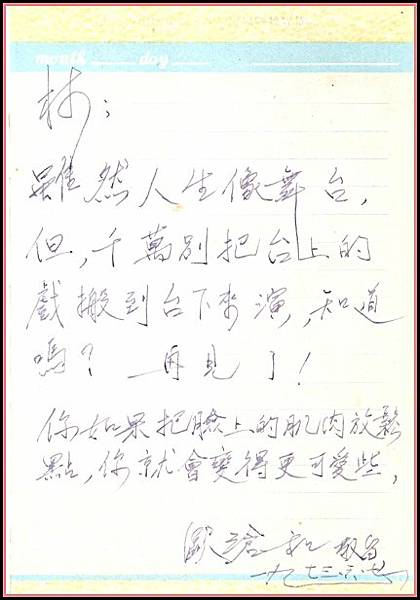 month day
林：
雖然人生像舞台，
但，千萬別把台上的
戲搬到台下來演，知道
嗎？再見了！
你如果把臉上的肌肉放鬆
點，你就會變得更可愛些，
一九七三·六·七